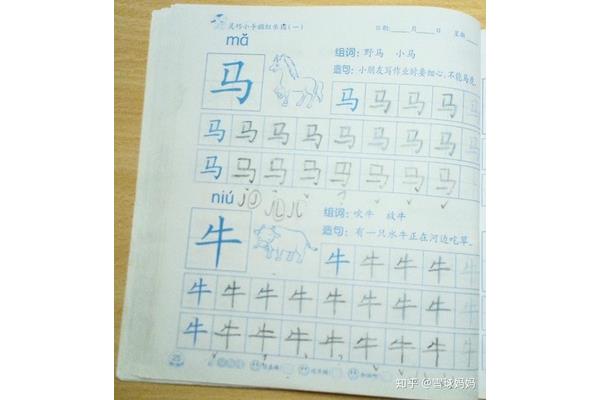 灵巧小手描红乐园(一) 日期:____月____日 星期____
mǎ
组词: 野马 小马
造句: 小朋友写作业时要细心,不能马虎。
马 马 马 马 马 马
马 马 马 马 马 马 马 马 马
马 马 马 马 马 马 马 马
niú
组词: 吹牛 放牛
造句: 有一只水牛正在河边吃草。
牛 牛 牛 牛 牛 牛
牛 牛 牛 牛 牛 牛 牛 牛 牛
牛 牛 牛 牛 牛 牛 牛 牛 牛
25
知乎 @雪球妈妈